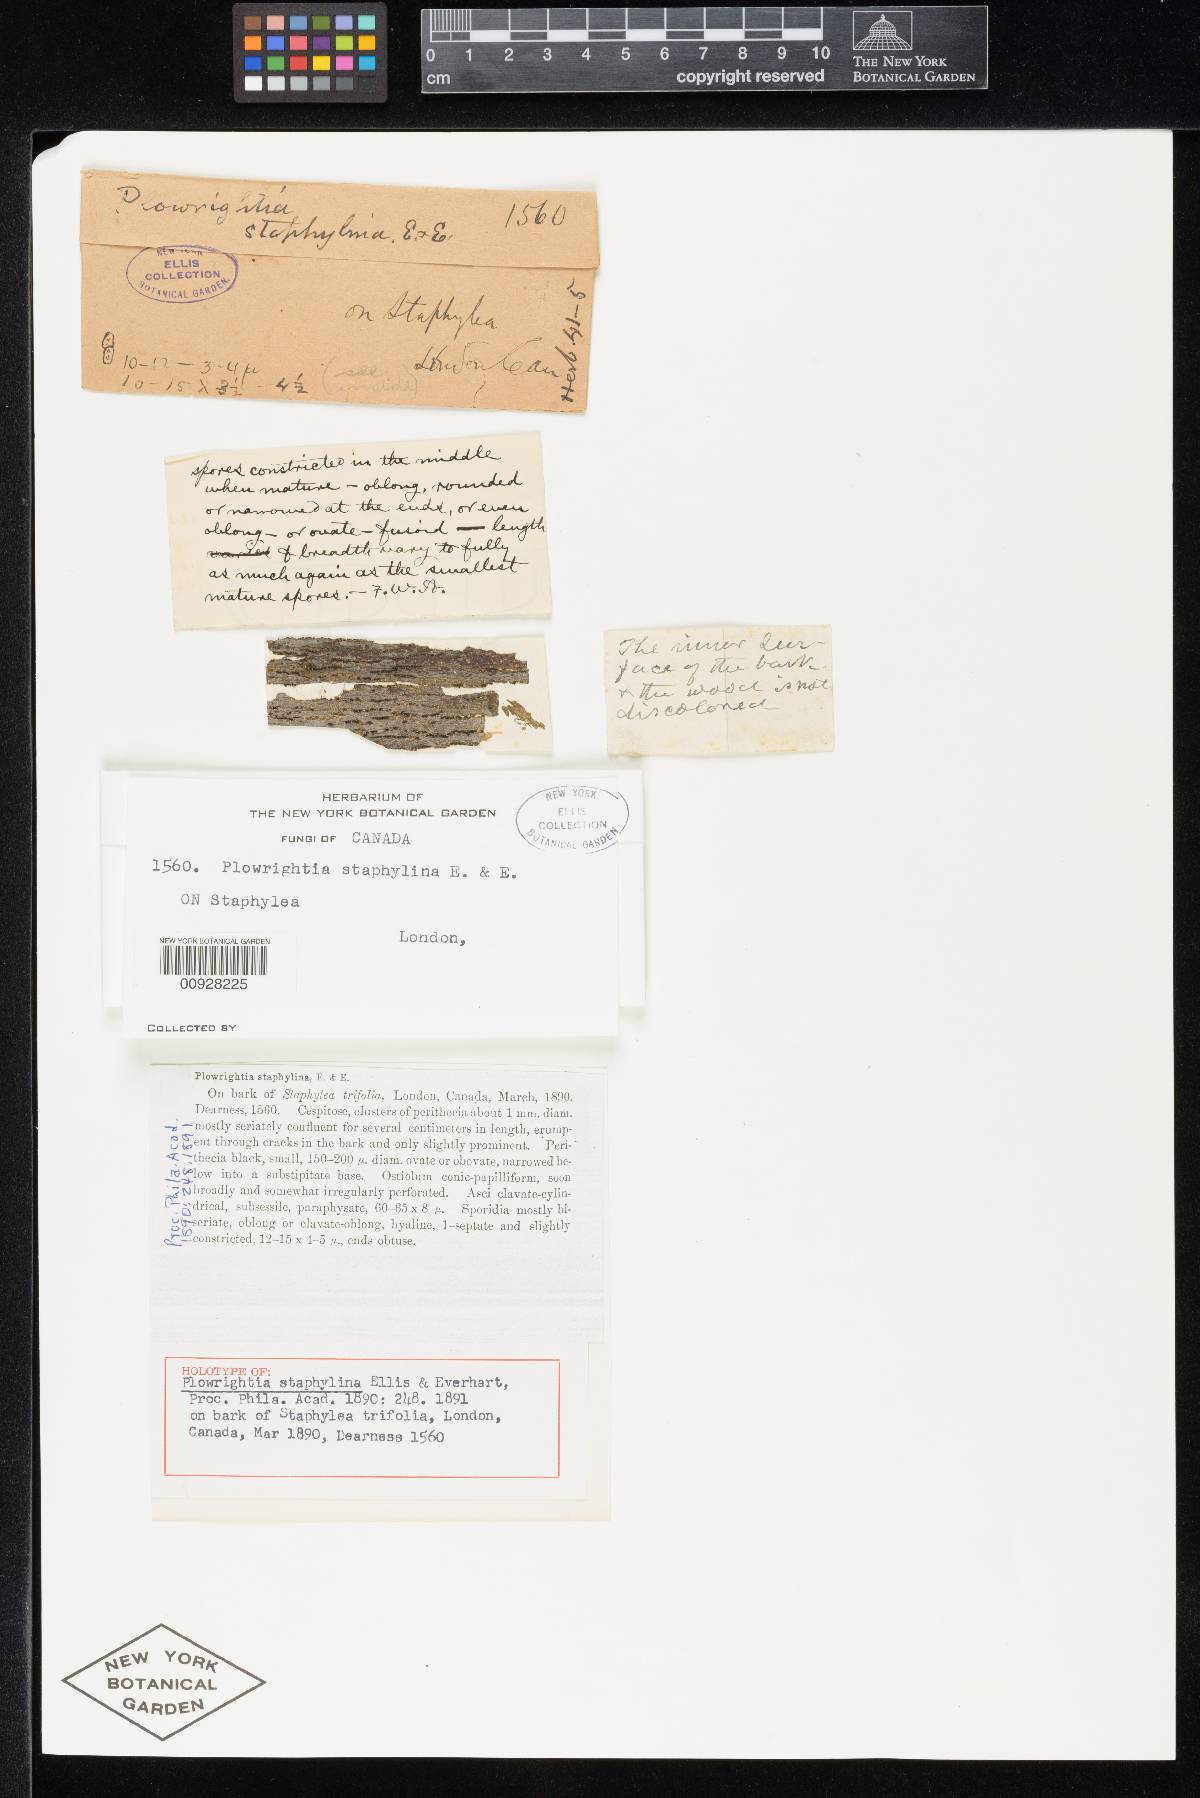 0 1 2 3 4 5 6 7 8 9 10
cm
copyright reserved
THE NEW YORK
BOTANICAL GARDEN
Plowrightia
staphylina. E&E.
1560
NEW YORK
ELLIS
COLLECTION
BOTANICAL GARDEN.
on Staphylea
London Can
Herb. 41-5
10-12 — 3-4 µ
10-15 X 3½ - 4½
(see
inside)
spores constricted in the middle
when mature - oblong, rounded
or narrowed at the ends, or even
oblong - or ovate - fusoid — length
varies & breadth vary to fully
as much again as the smallest
mature spores. - F.W.A.
The inner Sur-
face of the bark
& the wood is not
discolored
HERBARIUM OF
THE NEW YORK BOTANICAL GARDEN
FUNGI OF CANADA
NEW YORK
ELLIS
COLLECTION
BOTANICAL GARDEN
1560. Plowrightia staphylina E. & E.
ON Staphylea
London,
NEW YORK BOTANICAL GARDEN
00928225
COLLECTED BY
Plowrightia staphylina, E. & E.
On bark of Staphylea trifolia, London, Canada, March, 1890.
Dearness, 1560. Cespitose, clusters of perithecia about 1 mm. diam.
mostly seriately confluent for several centimeters in length, erump-
ent through cracks in the bark and only slightly prominent. Peri-
thecia black, small, 150–200 µ. diam. ovate or obovate, narrowed be-
low into a substipitate base. Ostiolum conic-papilliform, soon
broadly and somewhat irregularly perforated. Asci clavate-cylin-
drical, subsessile, paraphysate, 60–65 x 8 µ. Sporidia mostly bi-
seriate, oblong or clavate-oblong, hyaline, 1-septate and slightly
constricted, 12–15 x 4–5 µ., ends obtuse.
Proc. Phila. Acad.
1890: 248. 1891
HOLOTYPE OF:
Plowrightia staphylina Ellis & Everhart,
Proc. Phila. Acad. 1890: 248. 1891
on bark of Staphylea trifolia, London,
Canada, Mar 1890, Dearness 1560
NEW YORK
BOTANICAL
GARDEN